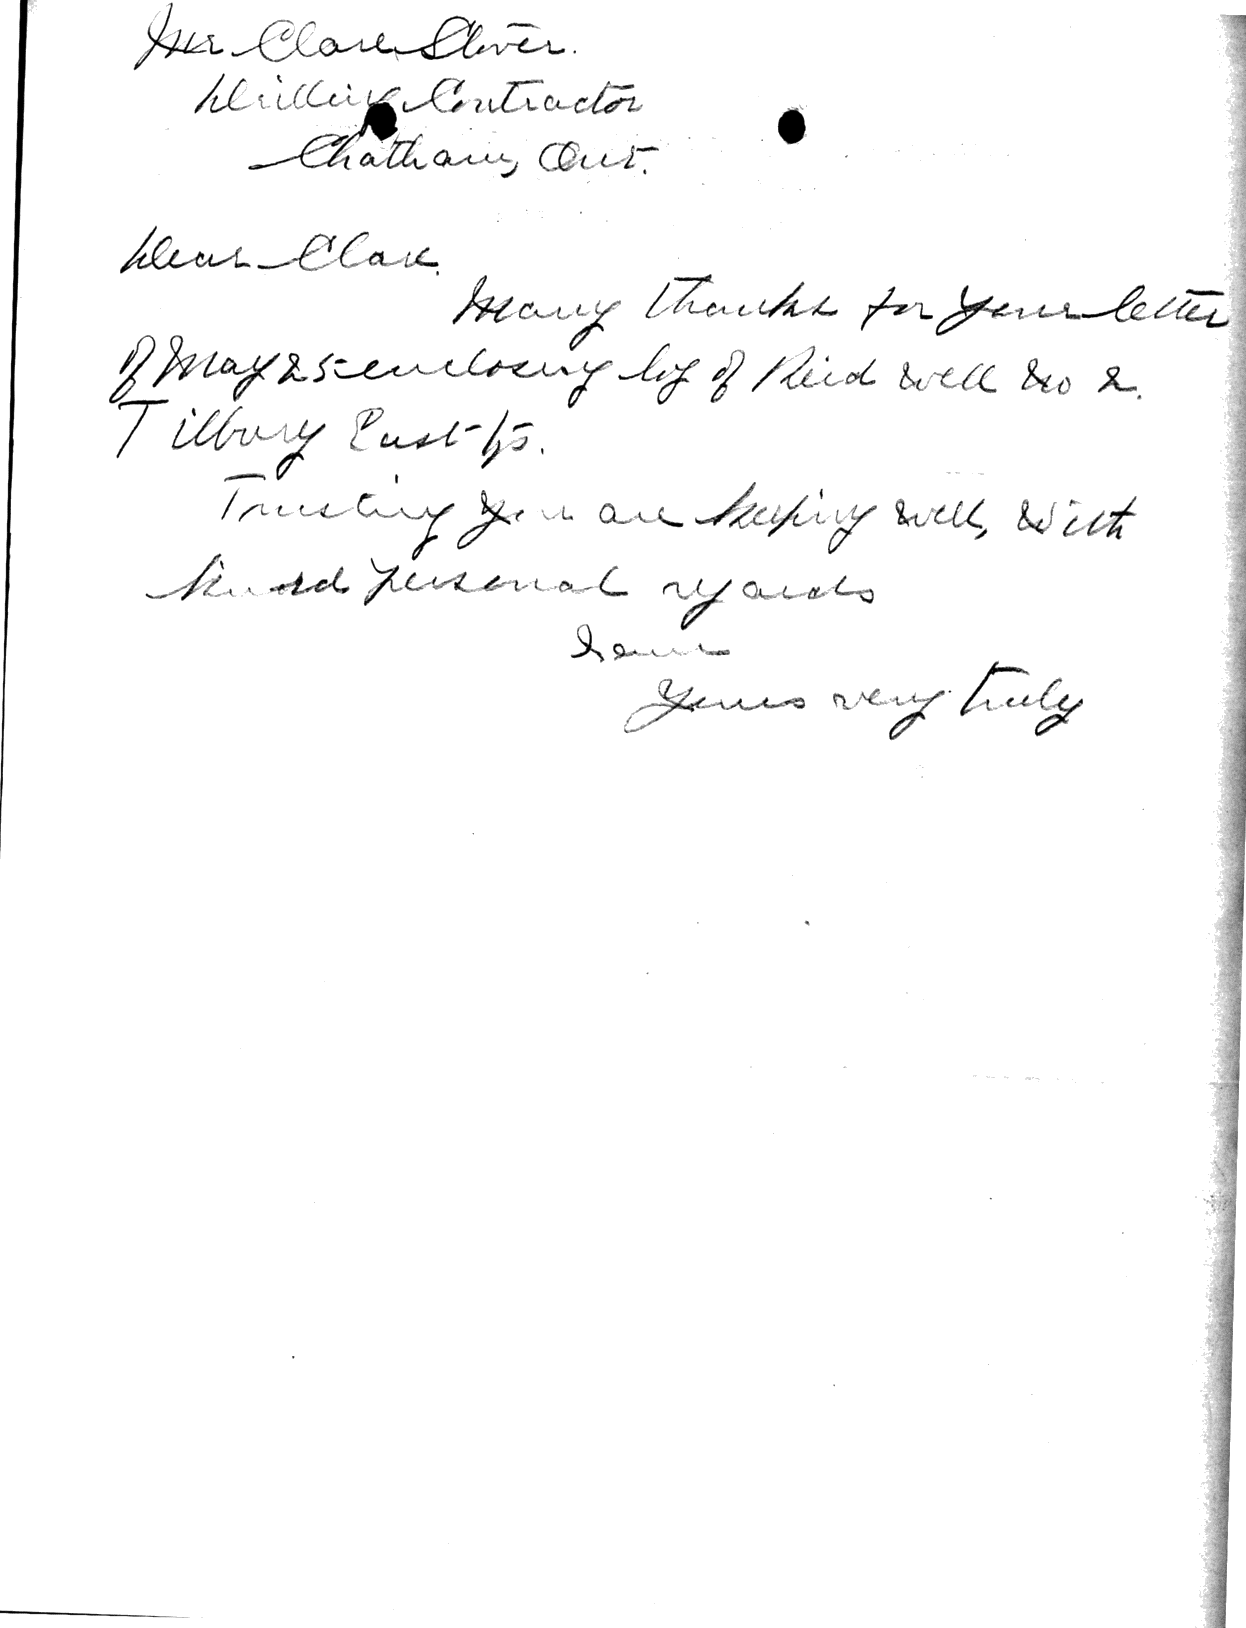 Mr. Clare Stover.
Drilling Contractor
Chatham, Ont.
Dear Clare.
Many thanks for your letter
of May 25 enclosing log of Reid well No 2.
Tilbury East tp.
Trusting you are keeping well, with
kind personal regards
I am
Yours very truly